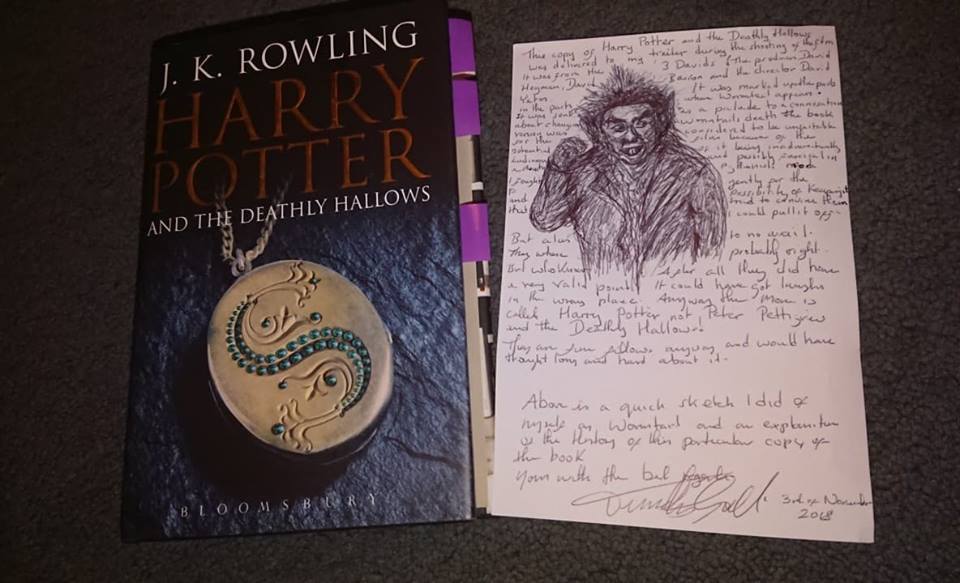 J. K. ROWLING
HARRY
POTTER
AND THE DEATHLY HALLOWS
BLOOMSBURY
This copy of Harry Potter and the Deathly Hallows
was delivered to my trailer during the shooting of the film
It was from the '3 Davids' the producer David
Heyman, David Barron and the director David
Yates It was marked up the parts
in the parts where Wormtail appears.
It was sent as a prelude to a conversation
about changing Wormtails death the book
version was considered to be unsuitable
for the film because of the
potential of it being inadvertently
and possibly
I fought gently for the
to possibility of
and tried to convince them
that I could pull it off.
But alas to no avail.
They where probably right.
But who knows After all they did have
a very valid point. It could have got laughs
in the wrong place. Anyway the Movie is
called Harry Potter not Peter Pettigrew
and the Deathly Hallows.
They are fine fellows anyway and would have
thought long and hard about it.
Above is a quick sketch I did of
myself as Wormtail and an explanation
of the history of this particular copy of
the book
Yours with the best regards
3rd of November
2018